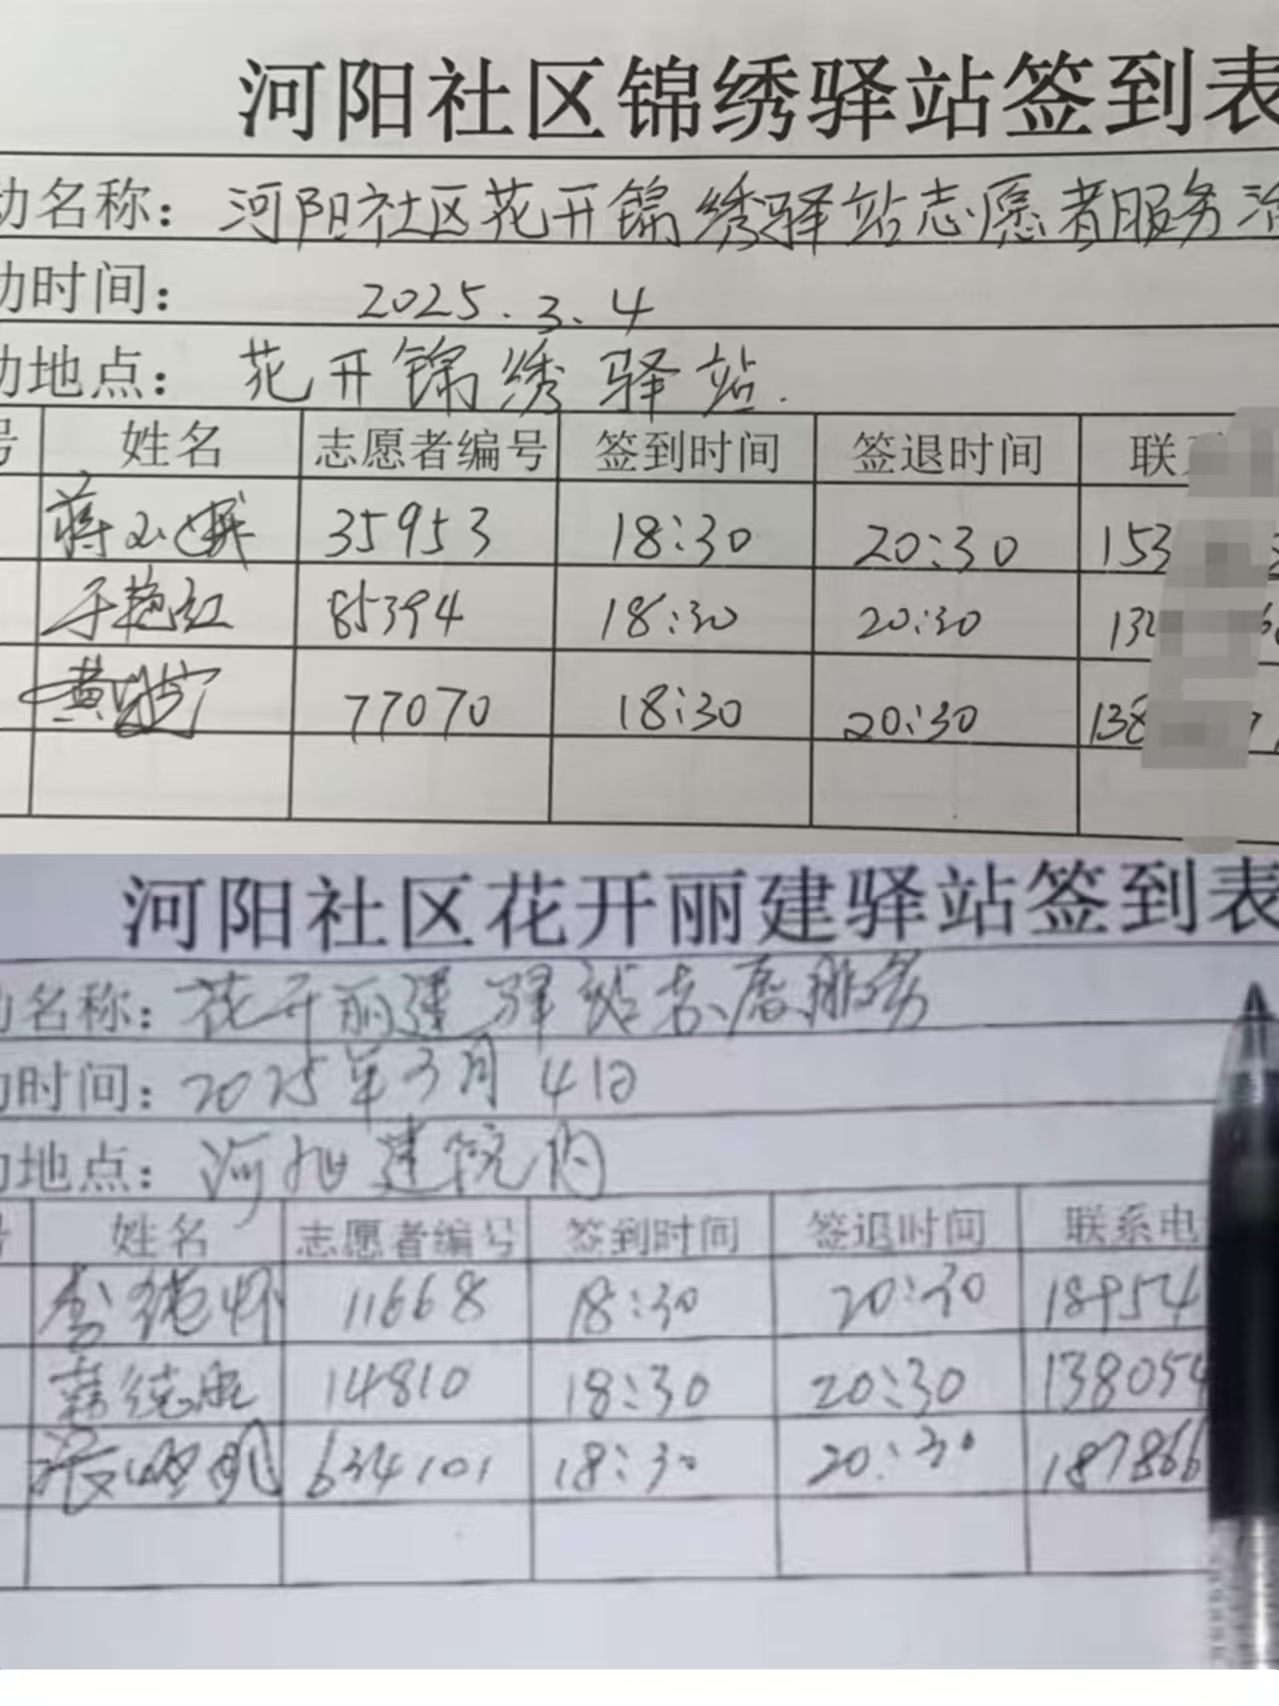 河阳社区锦绣驿站签到表
动名称：河阳社区花开锦绣驿站志愿者服务活
动时间：2025.3.4
动地点：花开锦绣驿站.
号 姓名 志愿者编号 签到时间 签退时间 联系
蒋 35953 18:30 20:30 153
于艳红 85394 18:30 20:30 13
黄 77070 18:30 20:30 138
河阳社区花开丽建驿站签到表
动名称：花开丽建驿站志愿服务
动时间：2025年3月4日
动地点：河阳建院内
号 姓名 志愿者编号 签到时间 签退时间 联系电
11668 18:30 20:30 18954
14810 18:30 20:30 138054
张明 634101 18:30 20:30 187866